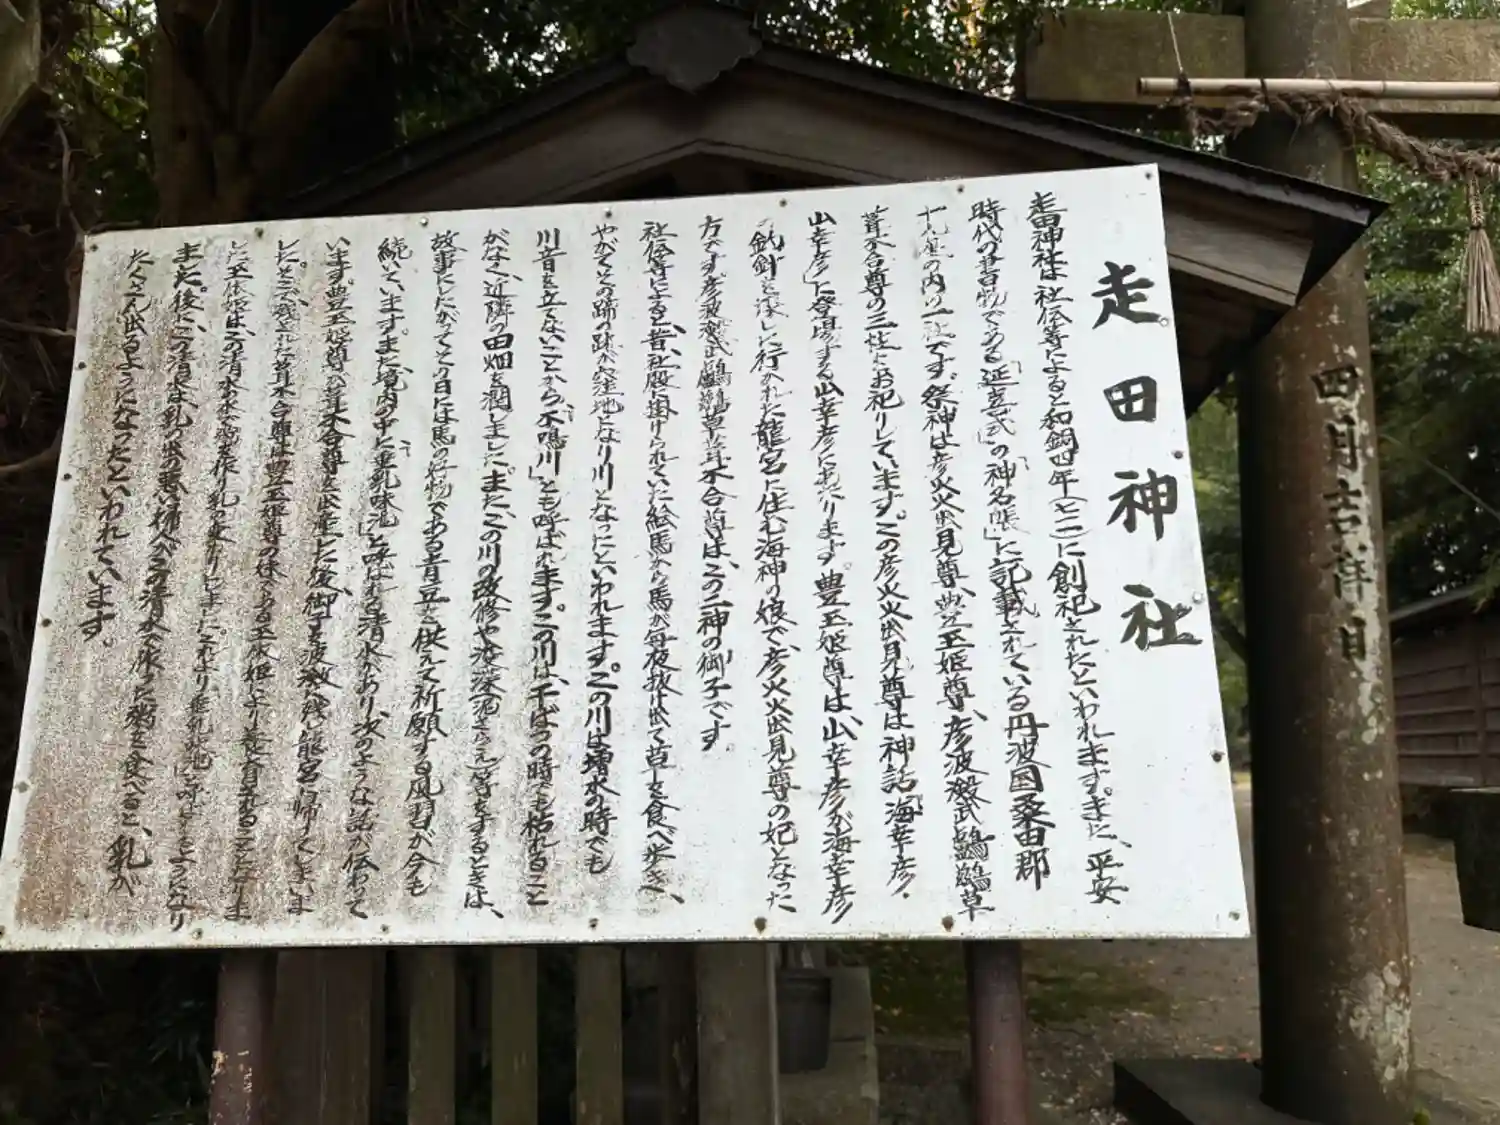 走田神社
走田神社は社伝等によると和銅四年(七一一)に創祀されたといわれます。また、平安
時代の書物である「延喜式」の「神名帳」に記載されている丹波国桑田郡
十九座の内の一社です。祭神は彦火火出見尊、豊玉姫尊、彦波瀲武鸕鶿草
葺不合尊の三柱をお祀りしています。この彦火火出見尊は神話「海幸彦・
山幸彦」に登場する山幸彦にあたります。豊玉姫尊は、山幸彦が海幸彦
の釣針を探しに行かれた龍宮に住む海神の娘で、彦火火出見尊の妃となった
方です。彦波瀲武鸕鶿草葺不合尊は、この二神の御子です。
社伝等によると、昔、社殿に掛けられていた絵馬から馬が毎夜抜け出て草を食べ歩き、
やがてその蹄の跡が窪地となり川となったといわれます。この川は増水の時でも
川音を立てないことから、「不鳴川」とも呼ばれます。この川は、干ばつの時でも枯れること
がなく、近隣の田畑を潤しました。また、この川の改修や浚渫(泥さらえ)等をするときは、
故事にしたがってその日には馬の好物である青豆を供えて祈願する風習が今も
続いています。また、境内の中に「垂乳味池」と呼ばれる清水があり、次のような話が伝わって
います。豊玉姫尊が葺不合尊を出産した後、御子を波瀲に残し龍宮に帰ってしまいま
した。そこで残された葺不合尊は豊玉姫尊の妹である玉依姫により養育されることになりま
した。玉依姫は、この清水の水で粥を作り乳の代わりとしました。これより「垂乳味池」と呼ばれるようになり
ました。後に、この清水は乳の出の悪い婦人がこの清水で作った粥を食べると、乳が
たくさん出るようになったといわれています。
四月吉祥日